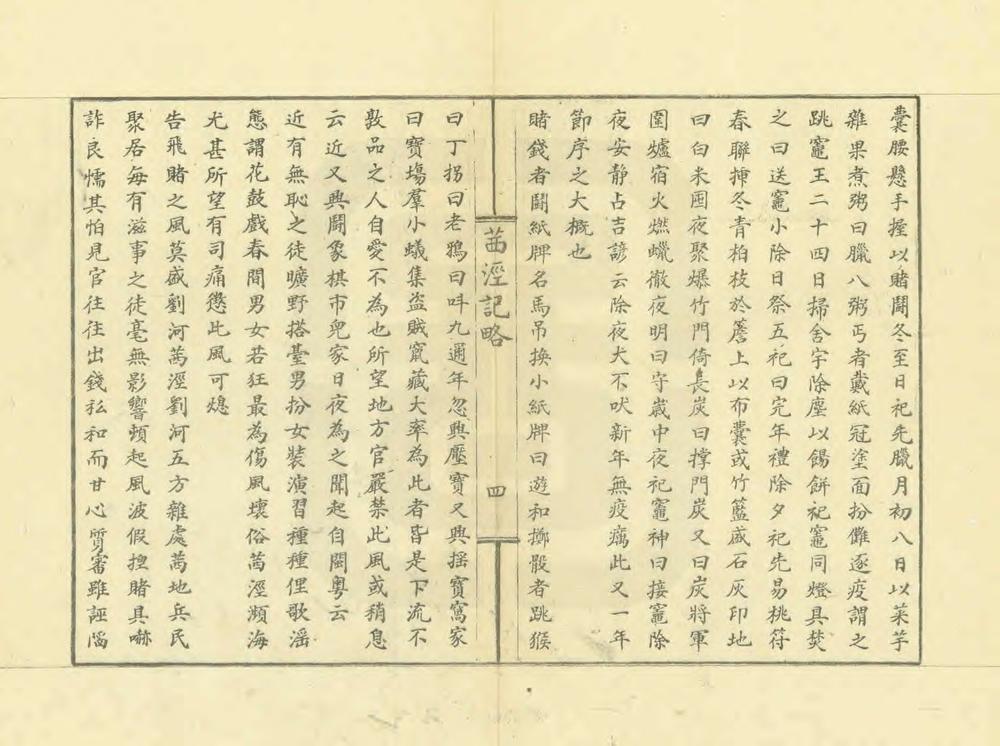 囊腰懸手握以賭鬪冬至日祀先臘月初八日以菜芋
雜果煮粥曰臘八粥丐者戴紙冠塗面扮儺逐疫謂之
跳竈王二十四日掃舍宇除塵以餳餅祀竈同燈具焚
之曰送竈小除日祭五祀曰完年禮除夕祀先易桃符
春聯揷冬青柏枝於簷上以布囊或竹籃盛石灰印地
曰白米囤夜聚爆竹門倚長炭曰撑門炭又曰炭將軍
圍爐宿火燃蠟徹夜明曰守歲中夜祀竈神曰接竈除
夜安静占吉諺云除夜犬不吠新年無疫癘此又一年
節序之大概也
賭錢者鬪紙牌名馬吊換小紙牌曰遊和擲骰者跳猴
茜涇記略
四
曰丁拐曰老鴉曰呌九通年忽興壓寶又興揺寶窩家
曰寶塲羣小蟻集盜賊竄藏大率為此者皆是下流不
敦品之人自愛不為也所望地方官嚴禁此風或稍息
云近又興鬪象棋市兒家日夜為之聞起自閩粤云
近有無恥之徒曠野搭臺男扮女裝演習種種俚歌滛
態謂花鼓戲春間男女若狂最為傷風壞俗茜涇瀕海
尤甚所望有司痛懲此風可熄
告飛賭之風莫盛劉河茜涇劉河五方雜處茜地兵民
聚居每有滋事之徒毫無影響頓起風波假捏賭具嚇
詐良懦其怕見官往往出錢私和而甘心質審雖誣